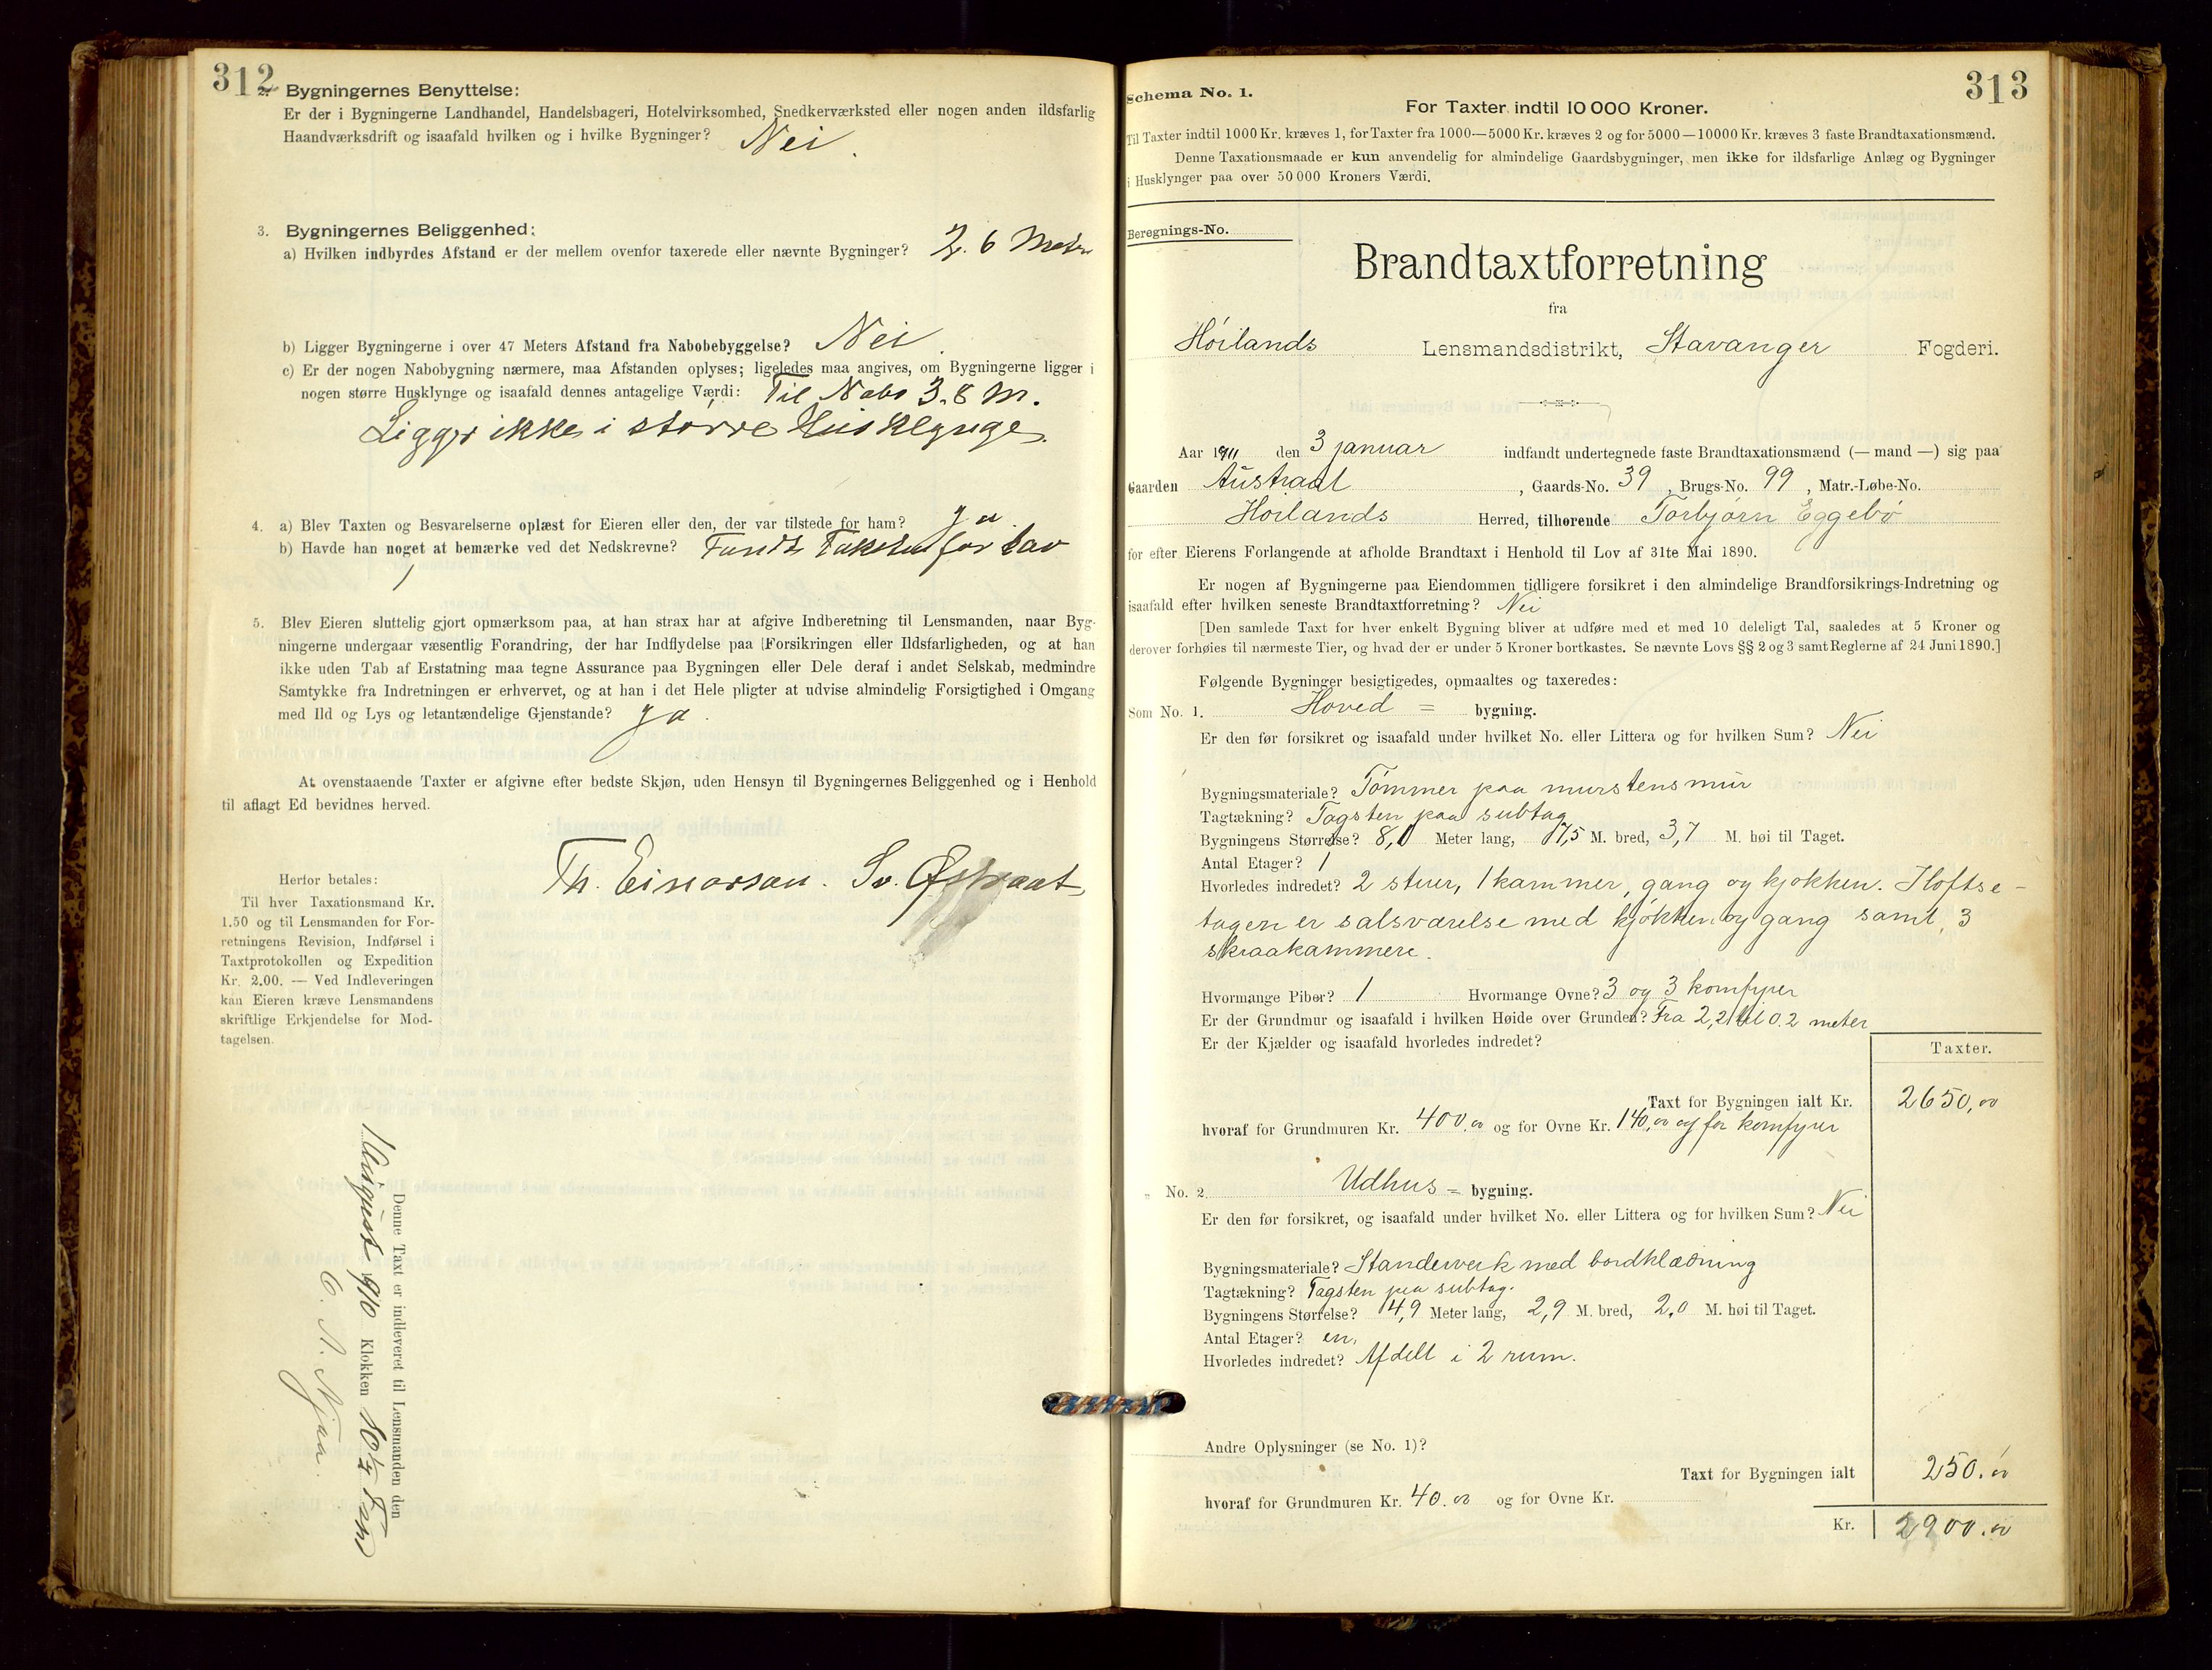 312
2. Bygningernes Benyttelse:
Er der i Bygningerne Landhandel, Handelsbageri, Hotelvirksomhed, Snedkerværksted eller nogen anden ildsfarlig
Haandværksdrift og isaafald hvilken og i hvilke Bygninger? Nei.
3. Bygningernes Beliggenhed:
a) Hvilken indbyrdes Afstand er der mellem ovenfor taxerede eller nævnte Bygninger? 2.6 Meter
b) Ligger Bygningerne i over 47 Meters Afstand fra Nabobebyggelse? Nei.
c) Er der nogen Nabobygning nærmere, maa Afstanden oplyses; ligeledes maa angives, om Bygningerne ligger i
nogen større Husklynge og isaafald dennes antagelige Værdi: Til Nabo 3.8 M.
Ligger ikke i større Husklynge.
4. a) Blev Taxten og Besvarelserne oplæst for Eieren eller den, der var tilstede for ham? Ja.
b) Havde han noget at bemærke ved det Nedskrevne? Fandt Taksten for lav
5. Blev Eieren sluttelig gjort opmærksom paa, at han strax har at afgive Indberetning til Lensmanden, naar Byg-
ningerne undergaar væsentlig Forandring, der har Indflydelse paa [Forsikringen eller Ildsfarligheden, og at han
ikke uden Tab af Erstatning maa tegne Assurance paa Bygningen eller Dele deraf i andet Selskab, medmindre
Samtykke fra Indretningen er erhvervet, og at han i det Hele pligter at udvise almindelig Forsigtighed i Omgang
med Ild og Lys og letantændelige Gjenstande? Ja.
At ovenstaaende Taxter er afgivne efter bedste Skjøn, uden Hensyn til Bygningernes Beliggenhed og i Henhold
til aflagt Ed bevidnes herved.
Th. Einarsen. Sv. Østraat
Herfor betales:
Til hver Taxationsmand Kr.
1.50 og til Lensmanden for For-
retningens Revision, Indførsel i
Taxtprotokollen og Expedition
Kr. 2.00. — Ved Indleveringen
kan Eieren kræve Lensmandens
skriftlige Erkjendelse for Mod-
tagelsen.
Denne Taxt er indleveret til Lensmanden den
1 August 1910 Klokken 10 ½ Form
Njaa.
313
Schema No. 1.
For Taxter indtil 10 000 Kroner.
Til Taxter indtil 1000 Kr. kræves 1, for Taxter fra 1000—5000 Kr. kræves 2 og for 5000—10000 Kr. kræves 3 faste Brandtaxationsmænd.
Denne Taxationsmaade er kun anvendelig for almindelige Gaardsbygninger, men ikke for ildsfarlige Anlæg og Bygninger
i Husklynger paa over 50 000 Kroners Værdi.
Beregnings-No.
Brandtaxtforretning
fra
Høilands Lensmandsdistrikt, Stavanger Fogderi.
Aar 1911 den 3 januar indfandt undertegnede faste Brandtaxationsmænd (— mand —) sig paa
Gaarden Austraat, Gaards-No. 39, Brugs-No. 99, Matr.-Løbe-No.
Høilands Herred, tilhørende Torbjørn Eggebø
for efter Eierens Forlangende at afholde Brandtaxt i Henhold til Lov af 31te Mai 1890.
Er nogen af Bygningerne paa Eiendommen tidligere forsikret i den almindelige Brandforsikrings-Indretning og
isaafald efter hvilken seneste Brandtaxtforretning? Nei
[Den samlede Taxt for hver enkelt Bygning bliver at udføre med et med 10 deleligt Tal, saaledes at 5 Kroner og
derover forhøies til nærmeste Tier, og hvad der er under 5 Kroner bortkastes. Se nævnte Lovs §§ 2 og 3 samt Reglerne af 24 Juni 1890.]
Følgende Bygninger besigtigedes, opmaaltes og taxeredes:
Som No. 1. Hoved = bygning.
Er den før forsikret og isaafald under hvilket No. eller Littera og for hvilken Sum? Nei
Bygningsmateriale? Tømmer paa murstensmur
Tagtækning? Tagsten paa subtag
Bygningens Størrelse? 8,0 Meter lang, 7,5 M. bred, 3,7 M. høi til Taget.
Antal Etager? 1
Hvorledes indredet? 2 stuer, 1 kammer, gang og kjøkken. I loftse-
tagen er salsværelse med kjøkken og gang samt 3
skraakammere.
Hvormange Piber? 1 Hvormange Ovne? 3 og 3 komfyrer
Er der Grundmur og isaafald i hvilken Høide over Grunden? Fra 2,2 til 0.2 meter
Er der Kjælder og isaafald hvorledes indredet?
Taxter.
Taxt for Bygningen ialt Kr. 2650,00
hvoraf for Grundmuren Kr. 400.00 og for Ovne Kr. 140,00 og for komfyrer
" No. 2 Udhus = bygning.
Er den før forsikret, og isaafald under hvilket No. eller Littera og for hvilken Sum? Nei
Bygningsmateriale? Standerverk med bordklædning
Tagtækning? Tagsten paa subtag.
Bygningens Størrelse? 4,9 Meter lang, 2,9 M. bred, 2,0 M. høi til Taget.
Antal Etager? en,
Hvorledes indredet? Afdelt i 2 rum.
Andre Oplysninger (se No. 1)?
Taxt for Bygningen ialt 250.00
hvoraf for Grundmuren Kr. 40.00 og for Ovne Kr.
Kr. 2900.00